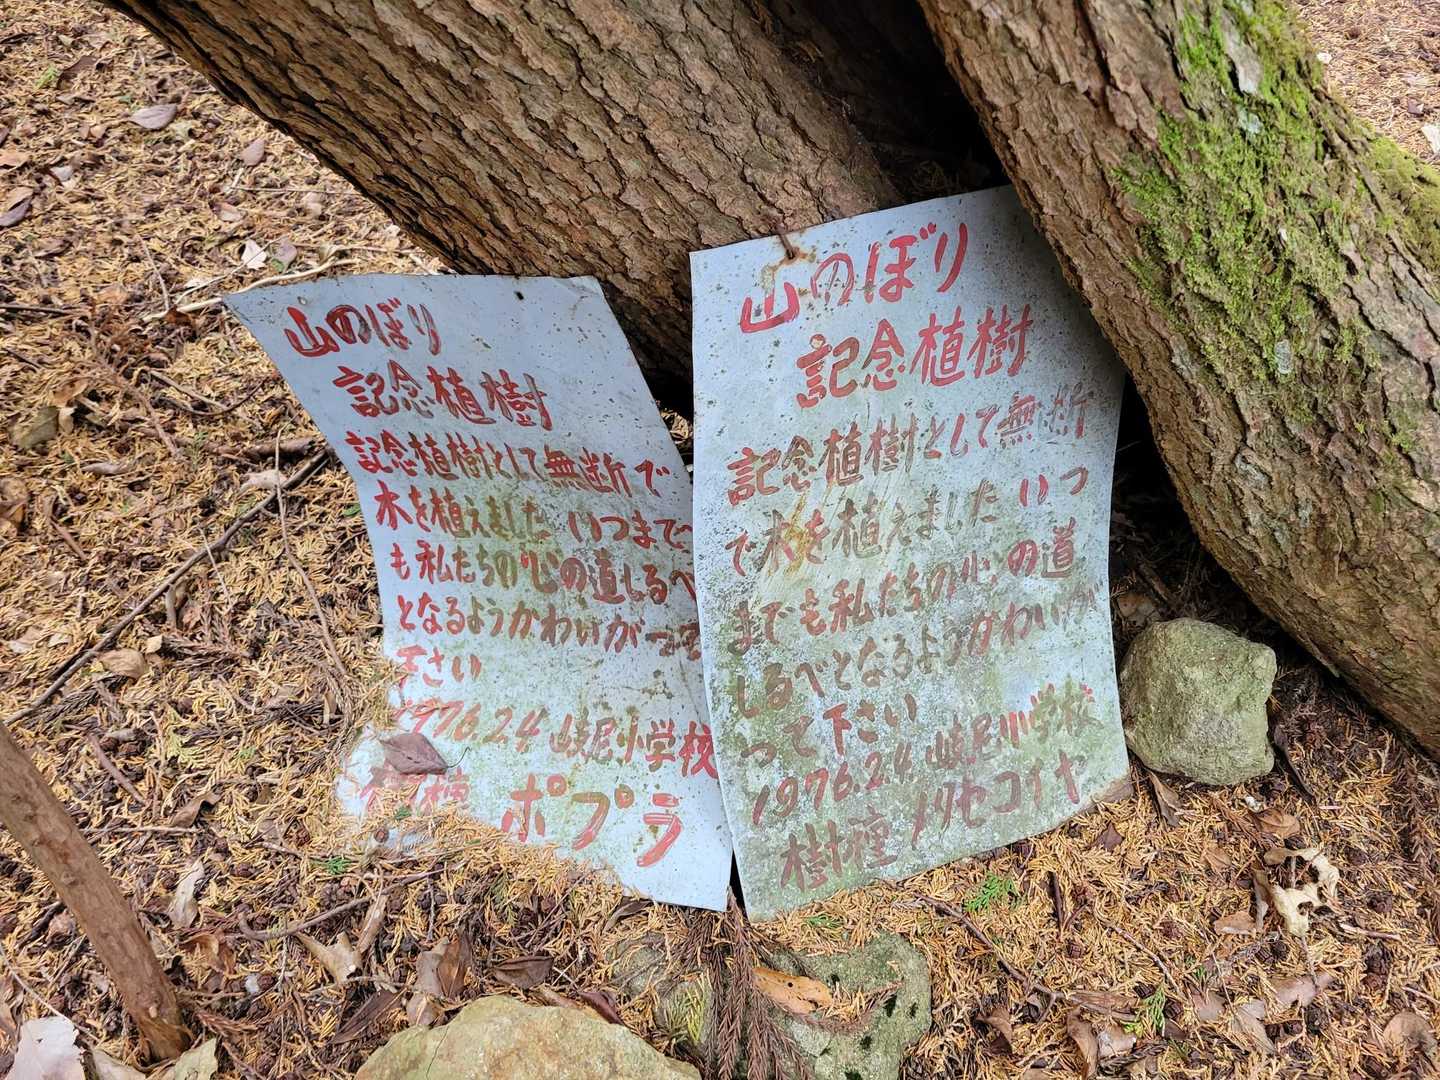 山のぼり
記念植樹
記念植樹として無断で
木を植えました いつまで
も私たちの心の道しるべ
となるようかわいがって
下さい
1976.2.4 岐尼小学校
樹種 ポプラ
山のぼり
記念植樹
記念植樹として無断
で木を植えました いつ
までも私たちの心の道
しるべとなるようかわいが
って下さい
1976.2.4 岐尼小学校
樹種 メタセコイヤ